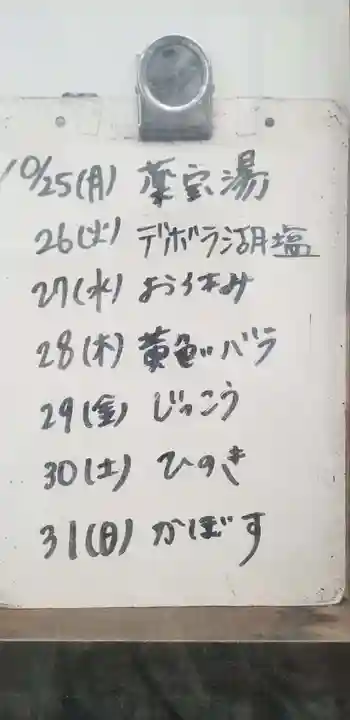 10/25(月) 薬宝湯
26(火) デボラ湖塩
27(水) お休み
28(木) 黄色いバラ
29(金) じっこう
30(土) ひのき
31(日) かぼす